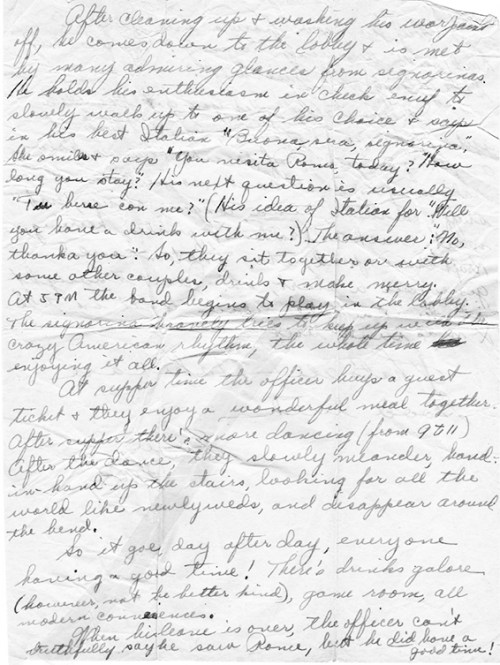 After cleaning up & washing his war paint
off, he comes down to the lobby & is met
by many admiring glances from signorinas.
He holds his enthusiasm in check enuf to
slowly walk up to one of his choice & says
in his best Italian "Buona sera, signorina".
She smiles & says "You nesita Roma today? "How
long you stay?" His next question is usually
"Tu bere con me?" (His idea of Italian for "Will
you have a drink with me?) The answer: "No,
thanka you". So, they sit together or with
some other couples, drink & make merry.
At 5 PM the band begins to play in the lobby.
The signorina bravely tries to keep up with
crazy American rhythm, the whole time
enjoying it all.
At supper time the officer buys a guest
ticket & they enjoy a wonderful meal together.
After supper, there's more dancing (from 9 to 11)
After the dance, they slowly meander, hand-
in-hand up the stairs, looking for all the
world like newlyweds, and disappear around
the bend.
So it goes, day after day, everyone
having a good time! There's drinks galore
(however, not the better kind), game room, all
modern conveiences.
When his leave is over, the officer can't
truthfully say he saw Rome, but he did have a
good time!